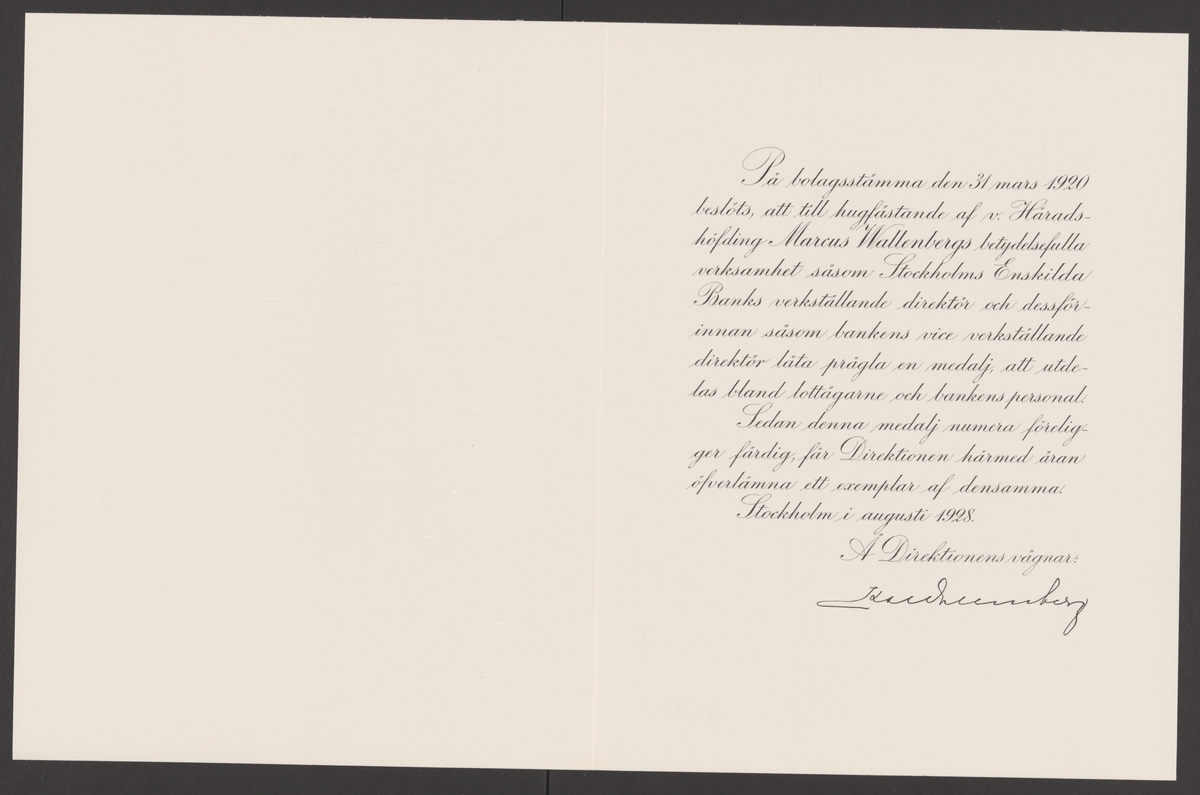 På bolagsstämma den 31 mars 1920
beslöts, att till hugfästande af v. Härads-
höfding Marcus Wallenbergs betydelsefulla
verksamhet såsom Stockholms Enskilda
Banks verkställande direktör och dessför-
innan såsom bankens vice verkställande
direktör låta prägla en medalj, att utde-
las bland lottägarne och bankens personal.
Sedan denna medalj numera förelig-
ger färdig, får Direktionen härmed äran
öfverlämna ett exemplar af densamma.
Stockholm i augusti 1928.
Å Direktionens vägnar: